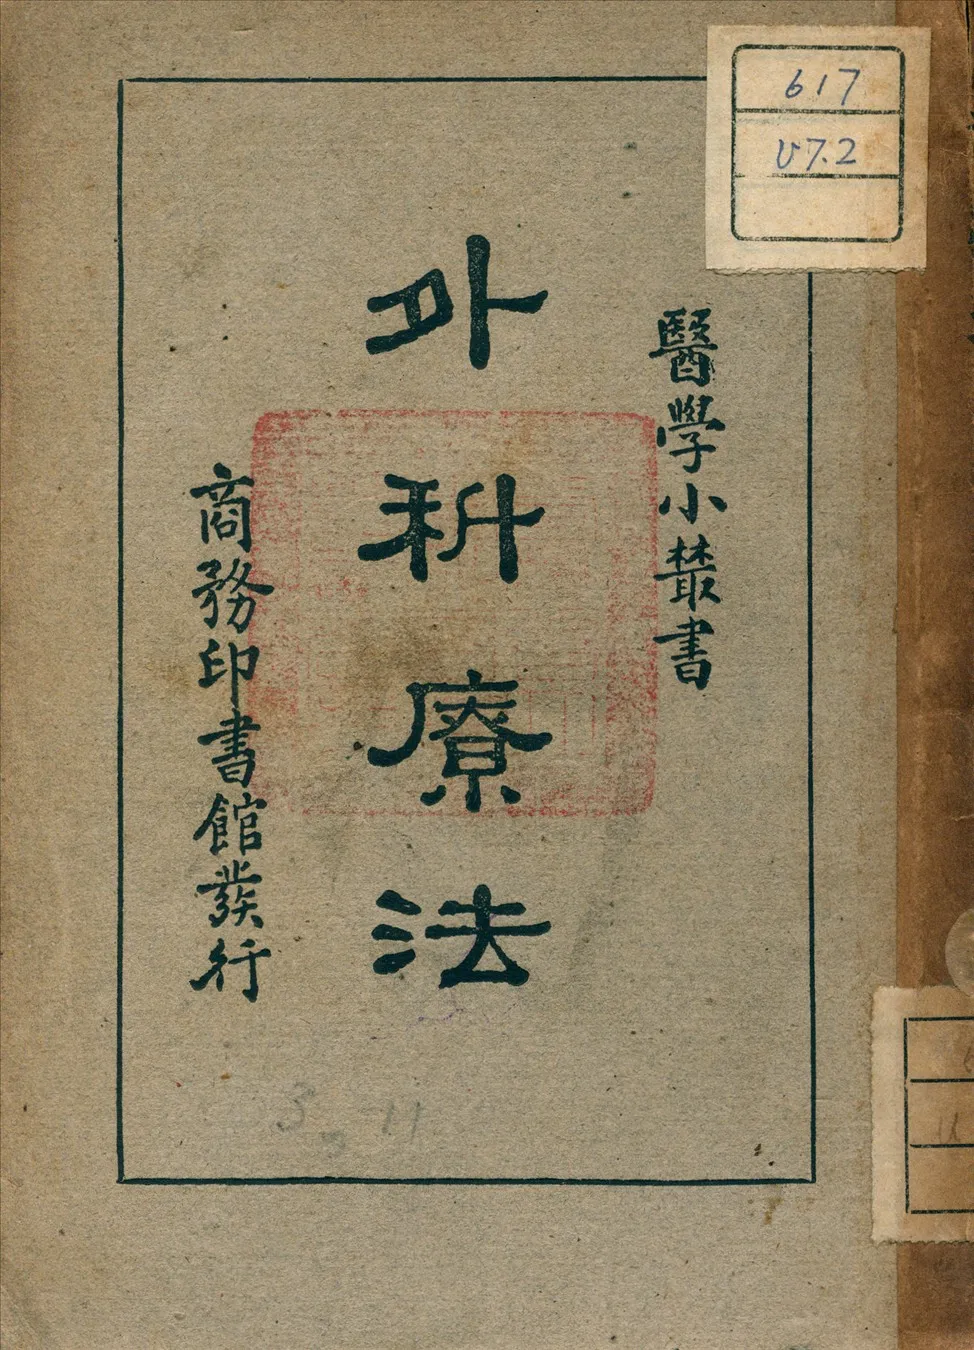 617
V7.2
醫學小叢書
外科療法
商務印書館發行
3。11